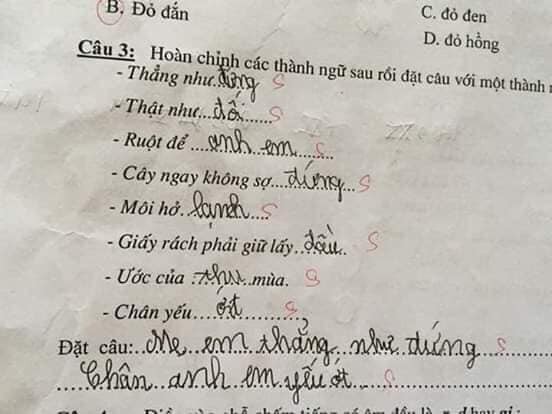 B. Đỏ đắn
C. đỏ đen
D. đỏ hồng
Câu 3: Hoàn chỉnh các thành ngữ sau rồi đặt câu với một thành
- Thẳng như đứng S
- Thật như...đối...... S
- Ruột để ....anh em.... S
- Cây ngay không sợ....đứng... S
- Môi hở..lạnh.... S
- Giấy rách phải giữ lấy..đầu.. S
- Ước của .thu..mùa. S
- Chân yếu....ớt.......... S
Đặt câu:..Mẹ..em thẳng...như..đứng S
Chân anh em yếu ớt S